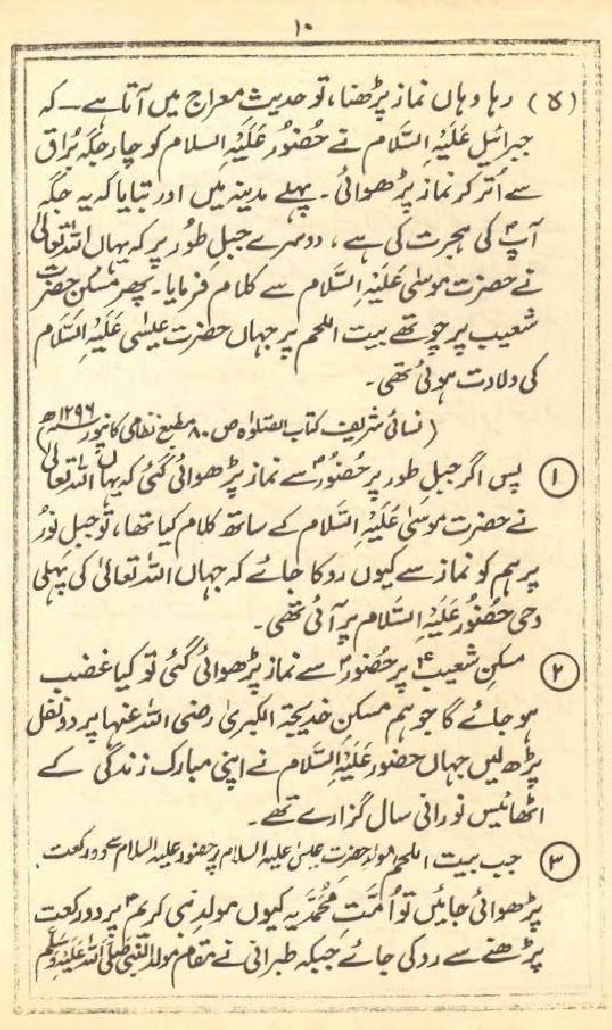 ۱۰
(۵) رہا وہاں نماز پڑھنا، تو حدیث معراج میں آتا ہے۔ کہ
جبرائیل عَلَیْہِ السَّلَام نے حضُور عَلَیْہِ السلام کو چار جگہ بُراق
سے اُتر کر نماز پڑھوائی۔ پہلے مدینہ میں اور بتایا کہ یہ جگہ
آپؐ کی ہجرت کی ہے، دوسرے جبلِ طُور پر کہ یہاں اللہ تعالیٰ
نے حضرت موسٰی عَلَیْہِ السَّلَام سے کلام فرمایا۔ پھر مسکن حضرت
شعیب پر چوتھے بیت اللحم پر جہاں حضرت عیسٰی عَلَیْہِ السَّلَام
کی ولادت ہوئی تھی۔
(نسائی شریف کتاب الصّلوٰۃ ص ۸۰ مطبع نظامی کانپور ۱۲۹۶ھ)
۱ پس اگر جبلِ طور پر حضُورؐ سے نماز پڑھوائی گئی کہ یہاں اللہ تعالیٰ
نے حضرت موسیٰ عَلَیْہِ السَّلَام کے ساتھ کلام کیا تھا، تو جبل نُور
پر ہم کو نماز سے کیوں روکا جائے کہ جہاں اللہ تعالیٰ کی پہلی
وحی حضُور عَلَیْہِ السَّلَام پر آئی تھی۔
۲ مسکنِ شعیبؑ پر حضُورؐ سے نماز پڑھوائی گئی تو کیا غضب
ہو جائے گا جو ہم مسکنِ خدیجۃ الکبریٰ رضی اللہ عنہا پر دو نفل
پڑھ لیں جہاں حضور عَلَیْہِ السَّلَام نے اپنی مبارک زندگی کے
اٹھائیس نورانی سال گزارے تھے۔
۳ جب بیت اللحم مولدِ حضرت عیسیٰ علیہ السلام پر حضور علیہ السلام سے دو رکعت
پڑھوائی جائیں تو اُمّتِ مُحمَّدیہ کیوں مولدِ نبی کریمؐ پر دو رکعت
پڑھنے سے روکی جائے جبکہ طبرانی نے مقام مولد النبی صَلَّی اللہُ عَلَیْہِ وَسَلَّم